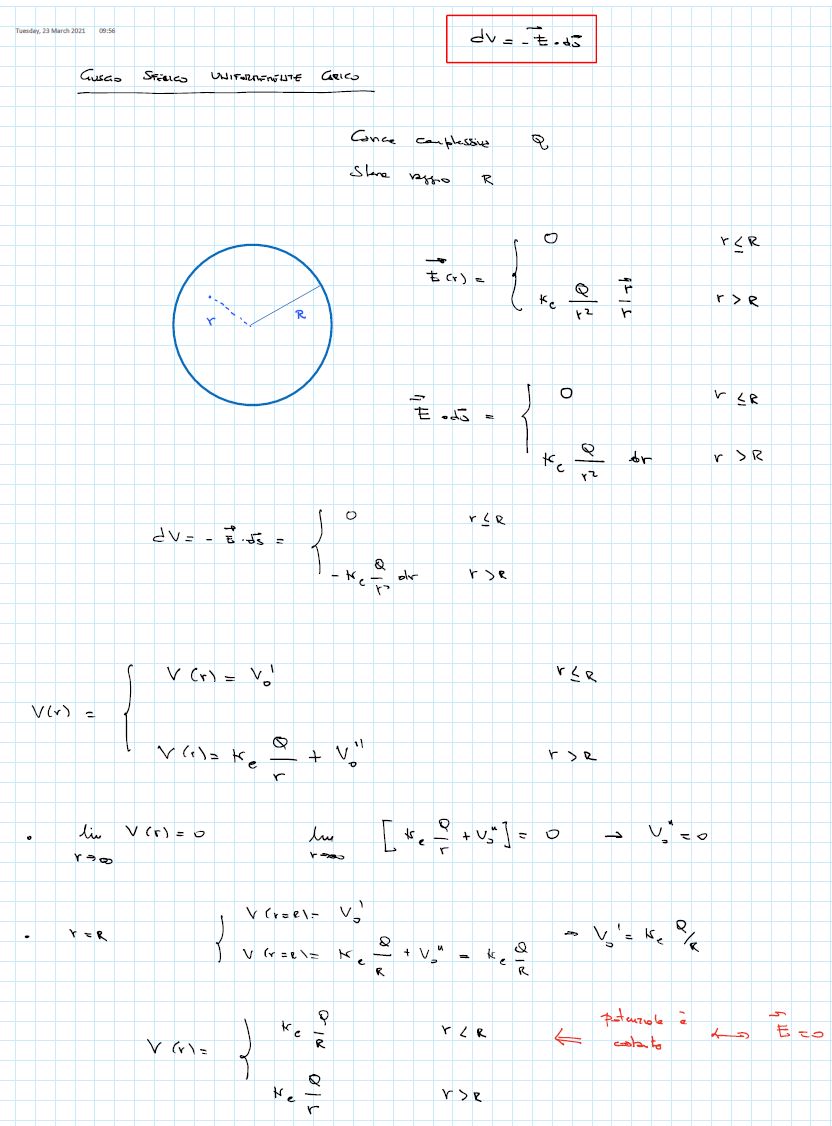 Tuesday, 23 March 2021 09:56
dV = - E⃗ · ds⃗
GUSCIO SFERICO UNIFORMEMENTE CARICO
Carica complessiva Q
Sfera raggio R
E⃗(r) = { 0 r ≤ R
k_e Q/r² r⃗/r r > R
r R
E⃗ · ds⃗ = { 0 r ≤ R
k_e Q/r² dr r > R
dV = - E⃗ · ds⃗ = { 0 r ≤ R
- k_e Q/r² dr r > R
V(r) = { V(r) = V₀' r ≤ R
V(r) = k_e Q/r + V₀'' r > R
• lim r→∞ V(r) = 0 lim r→∞ [ k_e Q/r + V₀'' ] = 0 → V₀'' = 0
• r = R { V(r=R) = V₀'
V(r=R) = k_e Q/R + V₀'' = k_e Q/R ⇒ V₀' = k_e Q/R
V(r) = { k_e Q/R r < R ⇐ potenziale è costante ↔ E⃗ = 0
k_e Q/r r > R